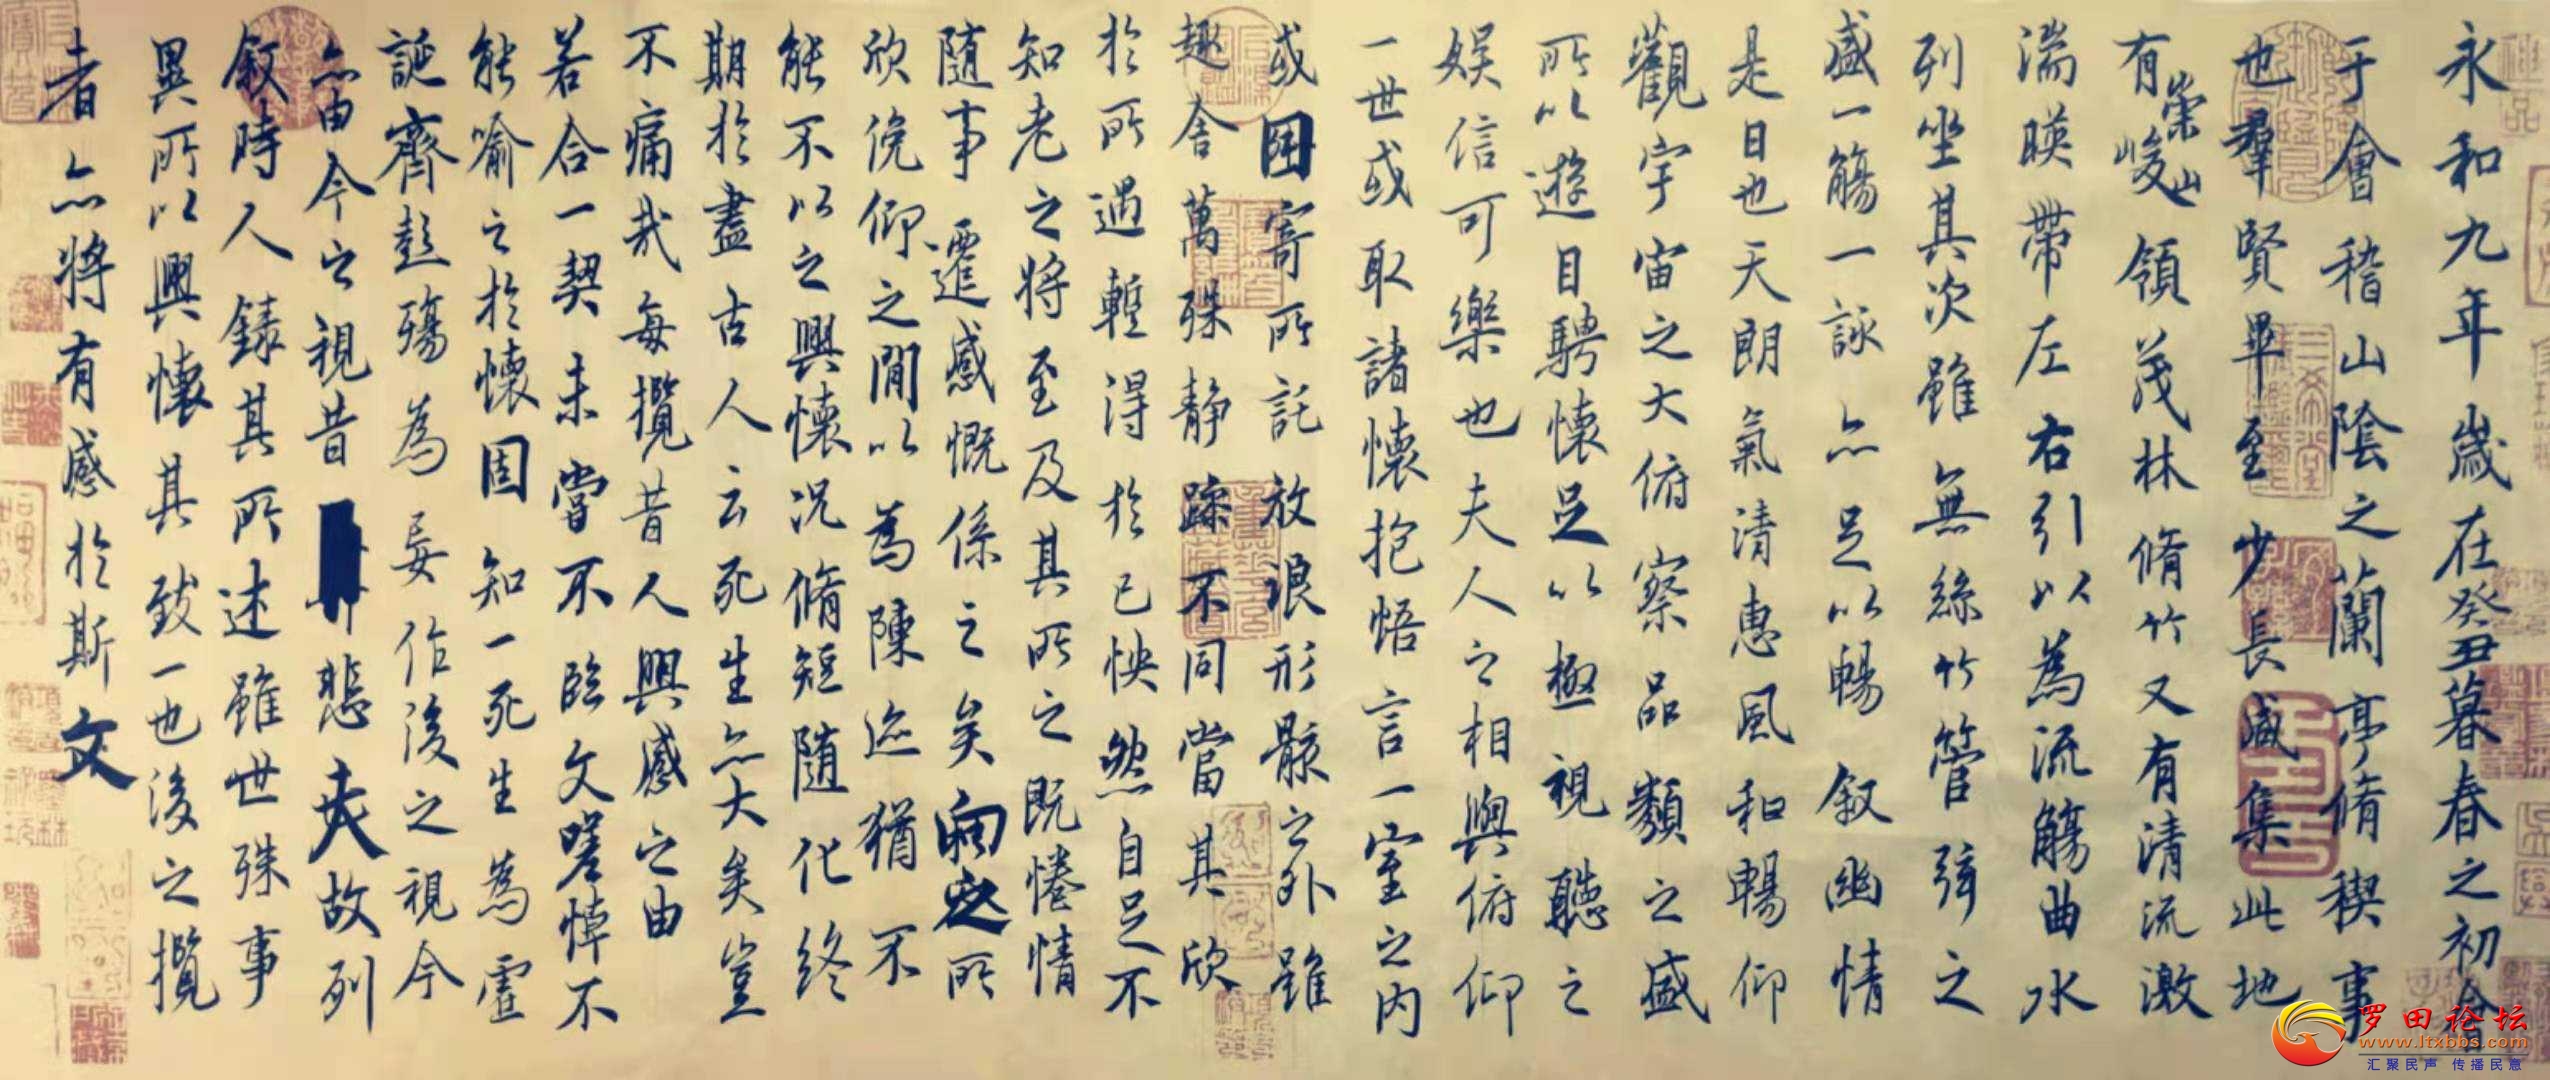 永和九年歲在癸丑暮春之初會
于會稽山陰之蘭亭脩稧事
也羣賢畢至少長咸集此地
有崇山峻領茂林脩竹又有清流激
湍暎帶左右引以為流觴曲水
列坐其次雖無絲竹管弦之
盛一觴一詠亦足以暢敘幽情
是日也天朗氣清惠風和暢仰
觀宇宙之大俯察品類之盛
所以遊目騁懷足以極視聽之
娛信可樂也夫人之相與俯仰
一世或取諸懷抱悟言一室之內
或因寄所託放浪形骸之外雖
趣舍萬殊靜躁不同當其欣
於所遇蹔得於己怏然自足不
知老之將至及其所之既惓情
隨事遷感慨係之矣向之所
欣俛仰之閒以為陳迹猶不
能不以之興懷況脩短隨化終
期於盡古人云死生亦大矣豈
不痛哉每攬昔人興感之由
若合一契未嘗不臨文嗟悼不
能喻之於懷固知一死生為虛
誕齊彭殤為妄作後之視今
亦由今之視昔悲夫故列
敘時人錄其所述雖世殊事
異所以興懷其致一也後之攬
者亦將有感於斯文
罗田论坛
www.ltxbbs.com
汇聚民声 传播民意